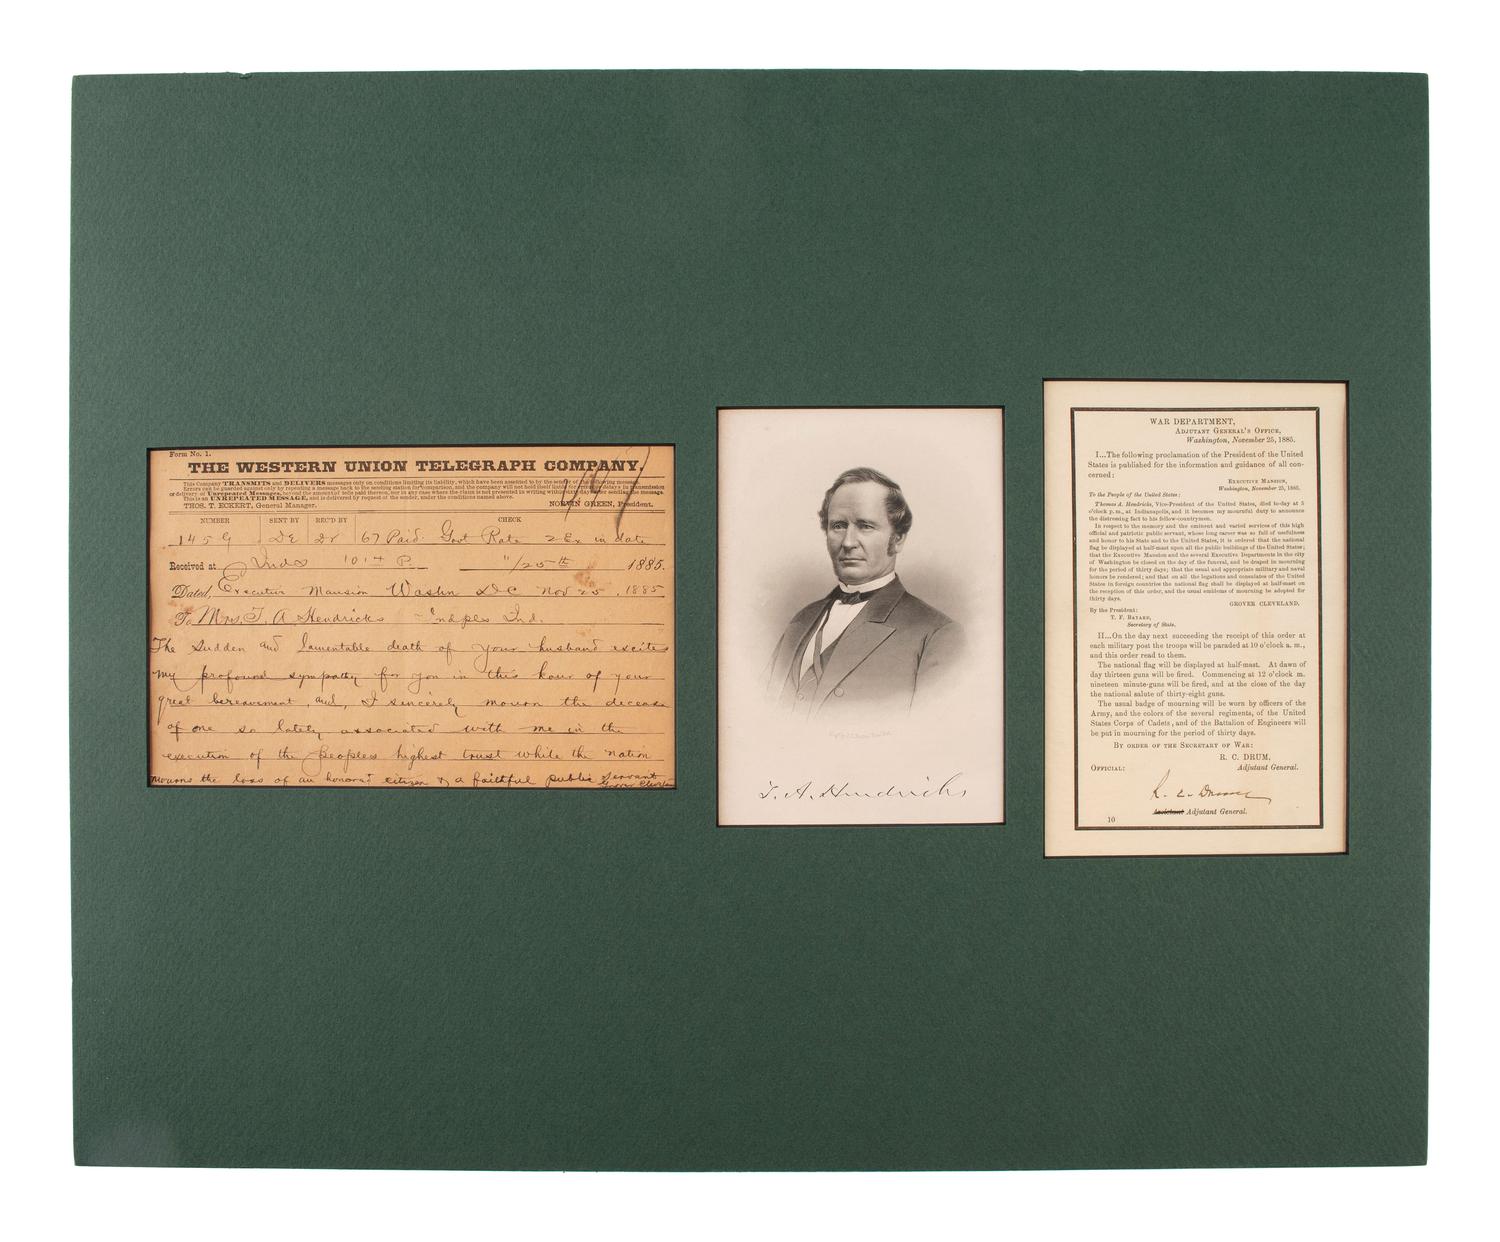 Form No. 1.
THE WESTERN UNION TELEGRAPH COMPANY.
This Company TRANSMITS and DELIVERS messages only on conditions limiting its liability, which have been assented to by the sender of the following message.
Errors can be guarded against only by repeating a message back to the sending station for comparison, and the company will not hold itself liable for errors or delays in transmission
or delivery of Unrepeated Messages, beyond the amount of tolls paid thereon, nor in any case where the claim is not presented in writing within sixty days after sending the message.
This is an UNREPEATED MESSAGE, and is delivered by request of the sender, under the conditions named above.
THOS. T. ECKERT, General Manager. NORVIN GREEN, President.
NUMBER SENT BY REC'D BY CHECK
145 G DE Dr 67 Paid Govt Rate 2 Ex in date
Received at Inds P 11/25th 1885.
Dated, Executive Mansion Washn DC Nov 25, 1885
To Mrs. T. A Hendricks Indpls Ind.
The Sudden and lamentable death of your husband excites
my profound sympathy for you in this hour of your
great bereavement, and, I sincerely mourn the decease
of one so lately associated with me in the
execution of the Peoples highest trust while the nation
mourns the loss of an honored citizen & a faithful public Servant
Grover Cleveland
T. A. Hendricks
WAR DEPARTMENT,
ADJUTANT GENERAL'S OFFICE,
Washington, November 25, 1885.
I...The following proclamation of the President of the United
States is published for the information and guidance of all con-
cerned:
EXECUTIVE MANSION,
Washington, November 25, 1885.
To the People of the United States:
Thomas A. Hendricks, Vice-President of the United States, died to-day at 5
o'clock p. m., at Indianapolis, and it becomes my mournful duty to announce
the distressing fact to his fellow-countrymen.
In respect to the memory and the eminent and varied services of this high
official and patriotic public servant, whose long career was so full of usefulness
and honor to his State and to the United States, it is ordered that the national
flag be displayed at half-mast upon all the public buildings of the United States;
that the Executive Mansion and the several Executive Departments in the city
of Washington be closed on the day of the funeral, and be draped in mourning
for the period of thirty days; that the usual and appropriate military and naval
honors be rendered; and that on all the legations and consulates of the United
States in foreign countries the national flag shall be displayed at half-mast on
the reception of this order, and the usual emblems of mourning be adopted for
thirty days.
GROVER CLEVELAND.
By the President:
T. F. BAYARD,
Secretary of State.
II...On the day next succeeding the receipt of this order at
each military post the troops will be paraded at 10 o'clock a. m.,
and this order read to them.
The national flag will be displayed at half-mast. At dawn of
day thirteen guns will be fired. Commencing at 12 o'clock m.
nineteen minute-guns will be fired, and at the close of the day
the national salute of thirty-eight guns.
The usual badge of mourning will be worn by officers of the
Army, and the colors of the several regiments, of the United
States Corps of Cadets, and of the Battalion of Engineers will
be put in mourning for the period of thirty days.
BY ORDER OF THE SECRETARY OF WAR:
R. C. DRUM,
OFFICIAL: Adjutant General.
R. C. Drum
Assistant Adjutant General.
10